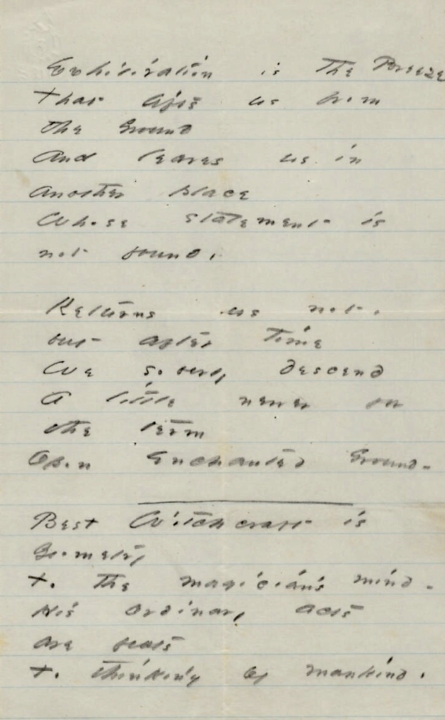 Exhiliration is the Breeze
that lifts us from
the Ground
And leaves us in
Another place
Whose statement is
not found.
Returns us not,
but after time
We soberly descend
A little newer for
the term
Upon Enchanted Ground -
Best Witchcraft is
Geometry
To the magician's mind -
His ordinary acts
are feats
To thinking of mankind.